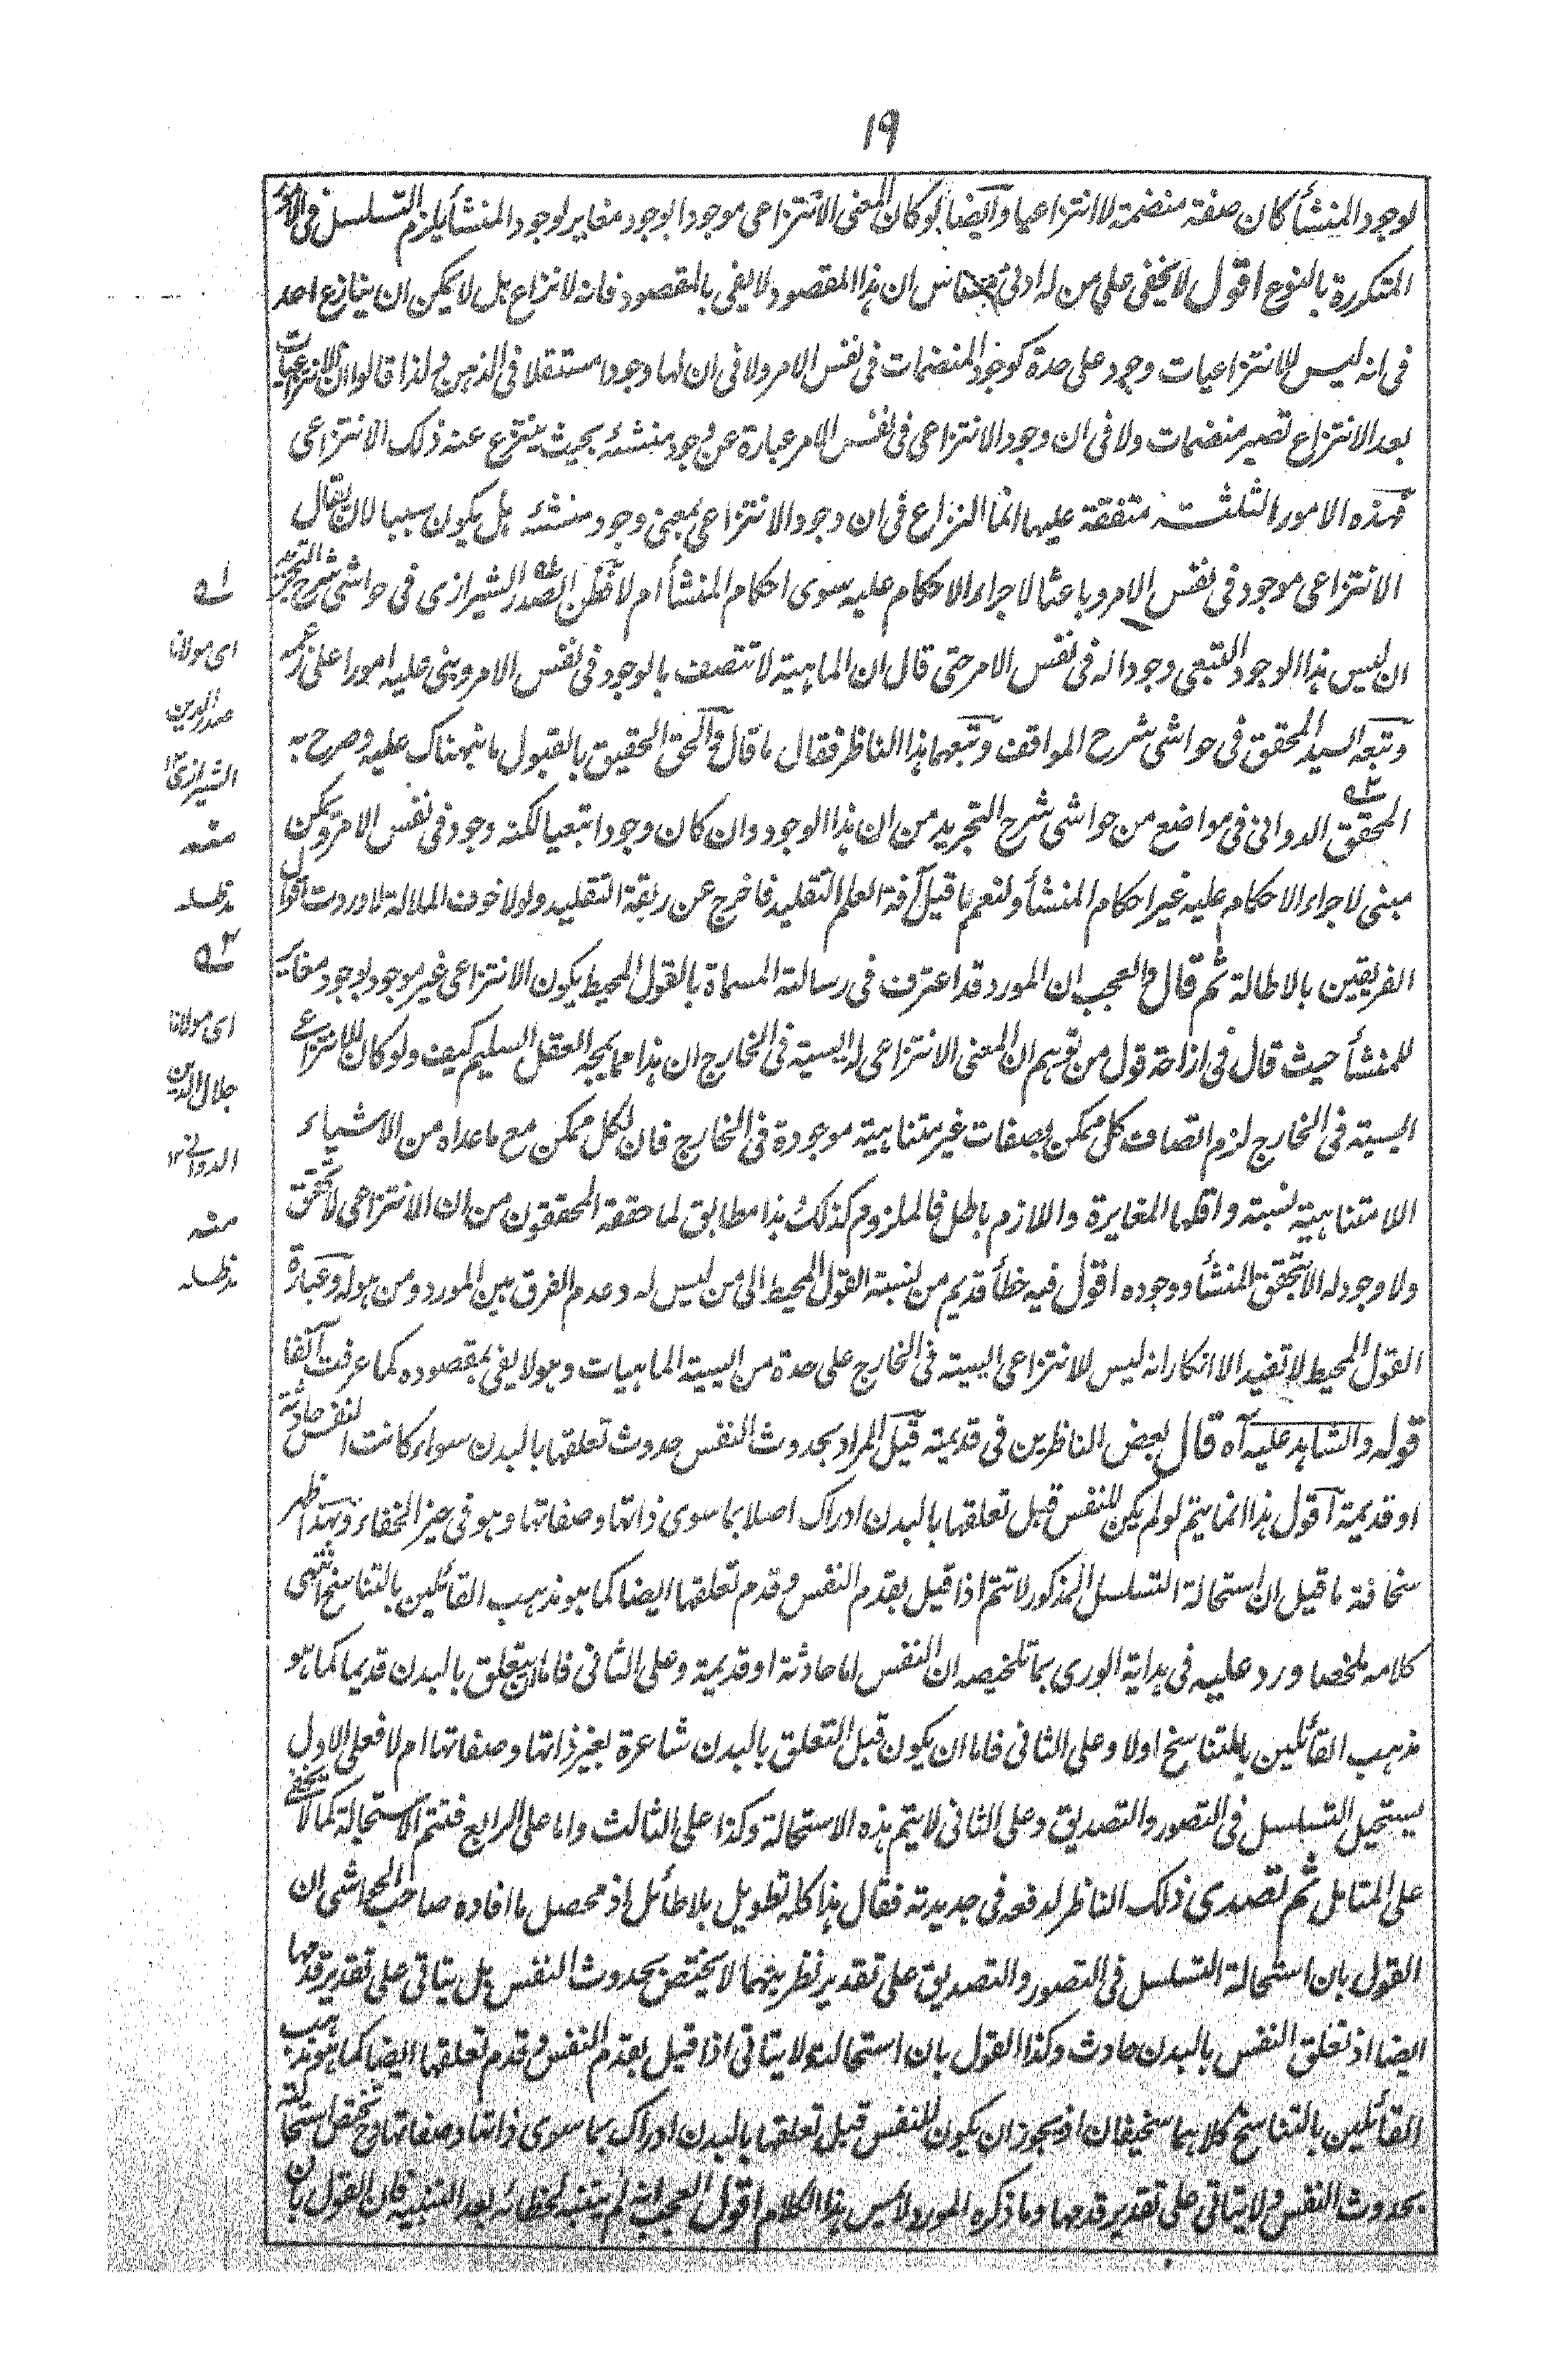 ١٩
لوجود المنشأ كان صفة منضمة لا انتزاعيا وأيضا لو كان المعنى الانتزاعى موجودا بوجود مغاير لوجود المنشأ يلزم التسلسل فى الامور
المتكررة بالنوع اقول لا يخفى على من له ادنى ان هذا المقصود لا يفى بالمقصود فانه لا نزاع بل لا يمكن ان ينازع احد
فى انه ليس للانتزاعيات وجود على حدة كوجود المنضمات فى نفس الامر ولا فى ان لها وجودا مستقلا فى الذهن ولذا قالوا ان الانتزاعيات
بعد الانتزاع تصير منضمات ولا فى ان وجود الانتزاعى فى نفس الامر عبارة عن وجود منشئه بحيث ينتزع عنه ذلك الانتزاعى
فهذه الامور الثلثة متفقة عليها انما النزاع فى ان وجود الانتزاعى بمعنى وجود منشئه هل يكون سببا لان يقال
الانتزاعى موجود فى نفس الامر وباعثا لاجراء الاحكام عليه سوى احكام المنشأ ام لا فظن الصدر الشيرازى فى حواشى شرح التجريد
ان ليس هذا الوجود التبعى وجودا له فى نفس الامر حتى قال ان الماهية لا تتصف بالوجود فى نفس الامر وبنى عليه امورا على زعمه
وتبعه السيد المحقق فى حواشى شرح المواقف وتبعهما هذا الناظر فقال ما قال والحق الحقيق بالقبول ما نبهناك عليه وصرح به
المحقق الدوانى فى مواضع من حواشى شرح التجريد من ان هذا الوجود وان كان وجودا تبعيا لكنه وجود فى نفس الامر ويمكن
مبنى لاجراء الاحكام عليه غير احكام المنشأ ولنعم ما قيل آفة العلم التقليد فاخرج عن ربقة التقليد ولولا خوف الملالة لاوردت اقوال
الفريقين بالاطالة ثم قال والعجب ان المورد قد اعترف فى رسالته المسماة بالقول المحيط بكون الانتزاعى غير موجود بوجود مغاير
للمنشأ حيث قال فى ازاحة قول من توهم ان المعنى الانتزاعى له ايسية فى الخارج ان هذا مما يمجه العقل السليم كيف ولو كان للانتزاعى
ايسية فى الخارج لزم اتصاف كل ممكن بصفات غير متناهية موجودة فى الخارج فان لكل ممكن مع ما عداه من الاشياء
اللامتناهية نسبة واقلها المغايرة واللازم باطل فالملزوم كذلك هذا مطابق لما حققه المحققون من ان الانتزاعى لا تحقق
ولا وجود له الا بتحقق المنشأ ووجوده اقول فيه خطأ قديم من نسبة القول المحيط الى من ليس له وعدم الفرق بين المورد ومن هو له وعبارة
القول المحيط لا تفيد الا انكار انه ليس للانتزاعى ايسية فى الخارج على حدة من ايسية الماهيات وهو لا يفى بمقصوده كما عرفت آنفا
قوله والشاهد عليه آه قال بعض الناظرين فى قديمته قيل المراد بحدوث النفس حدوث تعلقها بالبدن سواء كانت النفس حادثة
او قديمة اقول هذا انما يتم لو لم يكن للنفس قبل تعلقها بالبدن ادراك اصلا بما سوى ذاتها وصفاتها وهو فى حيز الخفاء وبهذا ظهر
سخافة ما قيل ان استحالة التسلسل المذكور لا تتم اذا قيل بقدم النفس وقدم تعلقها ايضا كما هو مذهب القائلين بالتناسخ انتهى
كلامه ملخصا ورد عليه فى هداية الورى بما تلخيصه ان النفس اما حادثة او قديمة وعلى الثانى فاما ان يتعلق بالبدن قديما كما هو
مذهب القائلين بالتناسخ اولا وعلى الثانى فاما ان يكون قبل التعلق بالبدن شاعرة بغير ذاتها وصفاتها ام لا فعلى الاول
يستحيل التسلسل فى التصور والتصديق وعلى الثانى لا يتم هذه الاستحالة وكذا على الثالث واما على الرابع فتتم الاستحالة كما لا يخفى
على المتامل ثم تصدى ذلك الناظر لدفعه فى جديدته فقال هذا كله تطويل بلا طائل اذ محصل ما افاده صاحب الحواشى ان
القول بان استحالة التسلسل فى التصور والتصديق على تقدير نظريتهما لا يختص بحدوث النفس بل يتاتى على تقدير قدمها
ايضا اذ تعلق النفس بالبدن حادث وكذا القول بان استحالته لا يتاتى اذا قيل بقدم النفس وقدم تعلقها ايضا كما هو مذهب
القائلين بالتناسخ كلاهما سخيفان اذ يجوز ان يكون للنفس قبل تعلقها بالبدن ادراك بما سوى ذاتها وصفاتها وح تختص استحالة
بحدوث النفس ولا يتاتى على تقدير قدمها وما ذكره المورد لا يمس هذا الكلام اقول العجب انه لم يتنبه لخطائه بعد التنبيه فان القول بان
له
اى مولانا
صدر الدين
الشيرازى ١٢
منه
مد ظله
٢ه
اى مولانا
جلال الدين
الدوانى ١٢
منه
مد ظله